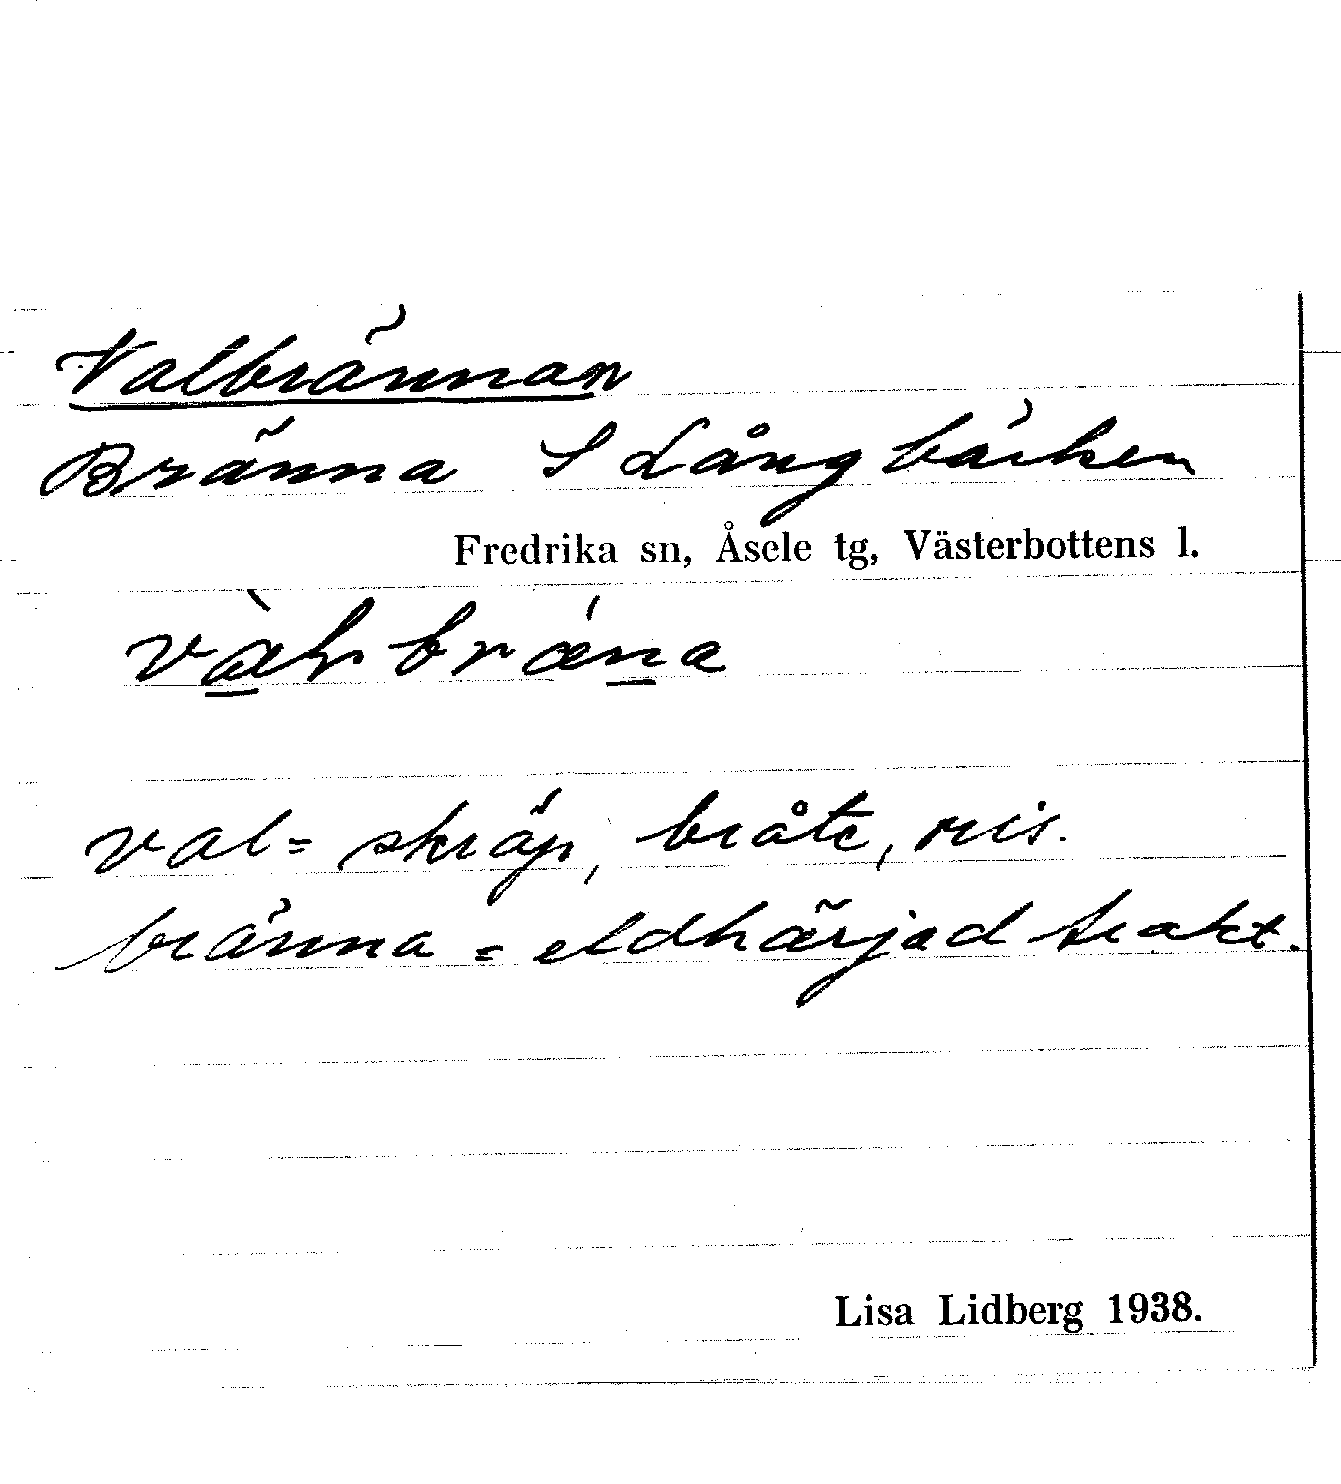 Valbrännan
Bränna S Långbäcken
Fredrika sn, Åsele tg, Västerbottens l.
val = skräp, bråte, ris.
bränna = eldhärjad trakt.
Lisa Lidberg 1938.